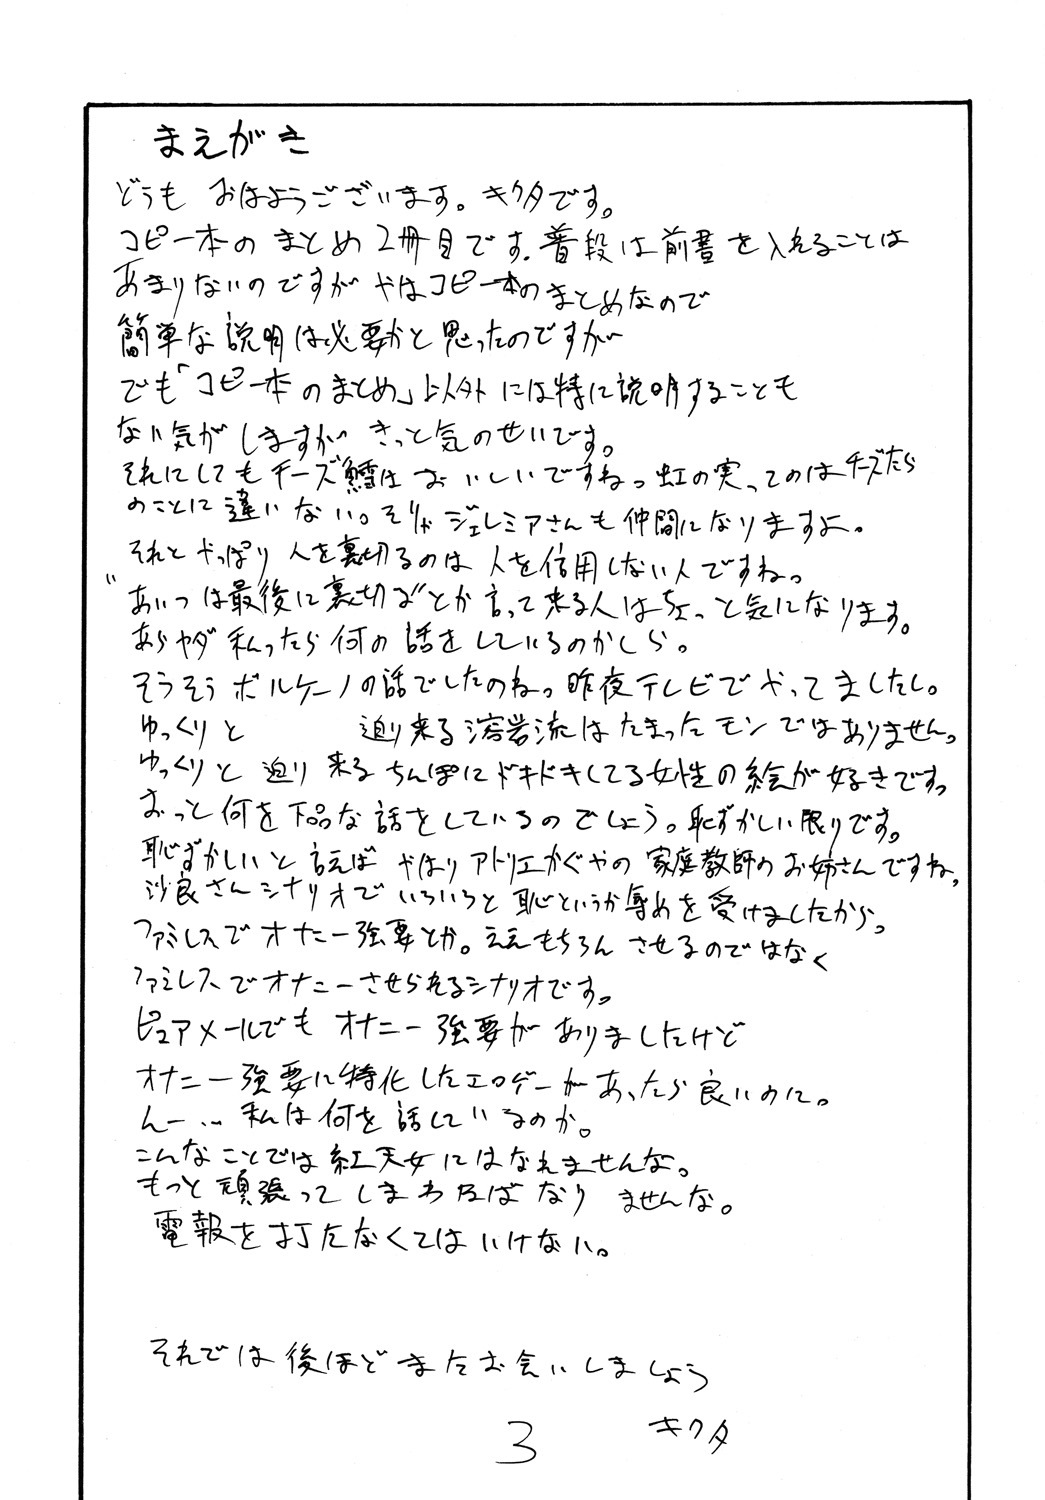 まえがき
どうも おはようございます。キクタです。
コピー本のまとめ2冊目です。普段は前書を入れることは
あまりないのですが やはコピー本のまとめなので
簡単な説明は必要かと思ったのですが
でも「コピー本のまとめ」以外には特に説明することも
ない気がしますが きっと気のせいです。
それにしてもチーズ鱈はおいしいですね。虹の実ってのはチーズたら
のことに違いない。そりゃジェレミアさんも仲間になりますよ。
それと やっぱり 人を裏切るのは 人を信用しない人ですね。
"あいつは最後に裏切るぞ"とか言って来る人はちょっと気になります。
あらヤダ 私ったら何の話をしているのかしら。
そうそう ボルケーノの話でしたのね。昨夜テレビでやってましたし。
ゆっくりと 迫り来る溶岩流はたまったモンではありません。
ゆっくりと 迫り来るちんぽにドキドキしてる女性の絵が好きです。
おっと何を下品な話をしているのでしょう。恥ずかしい限りです。
恥ずかしいと言えば やはりアトリエかぐやの家庭教師のお姉さんですね。
沙良さんシナリオでいろいろと恥というか辱めを受けましたから。
ファミレスでオナニー強要とか。ええもちろん させるのではなく
ファミレスでオナニーさせられるシナリオです。
ピュアメールでも オナニー強要がありましたけど
オナニー強要に特化したエロゲーがあったら良いのに。
んー… 私は何を話しているのか。
こんなことでは紅天女にはなれませんな。
もっと頑張って しまわねばなりませんな。
電報を打たなくてはいけない。
それでは後ほどまたお会いしましょう
キクタ
3